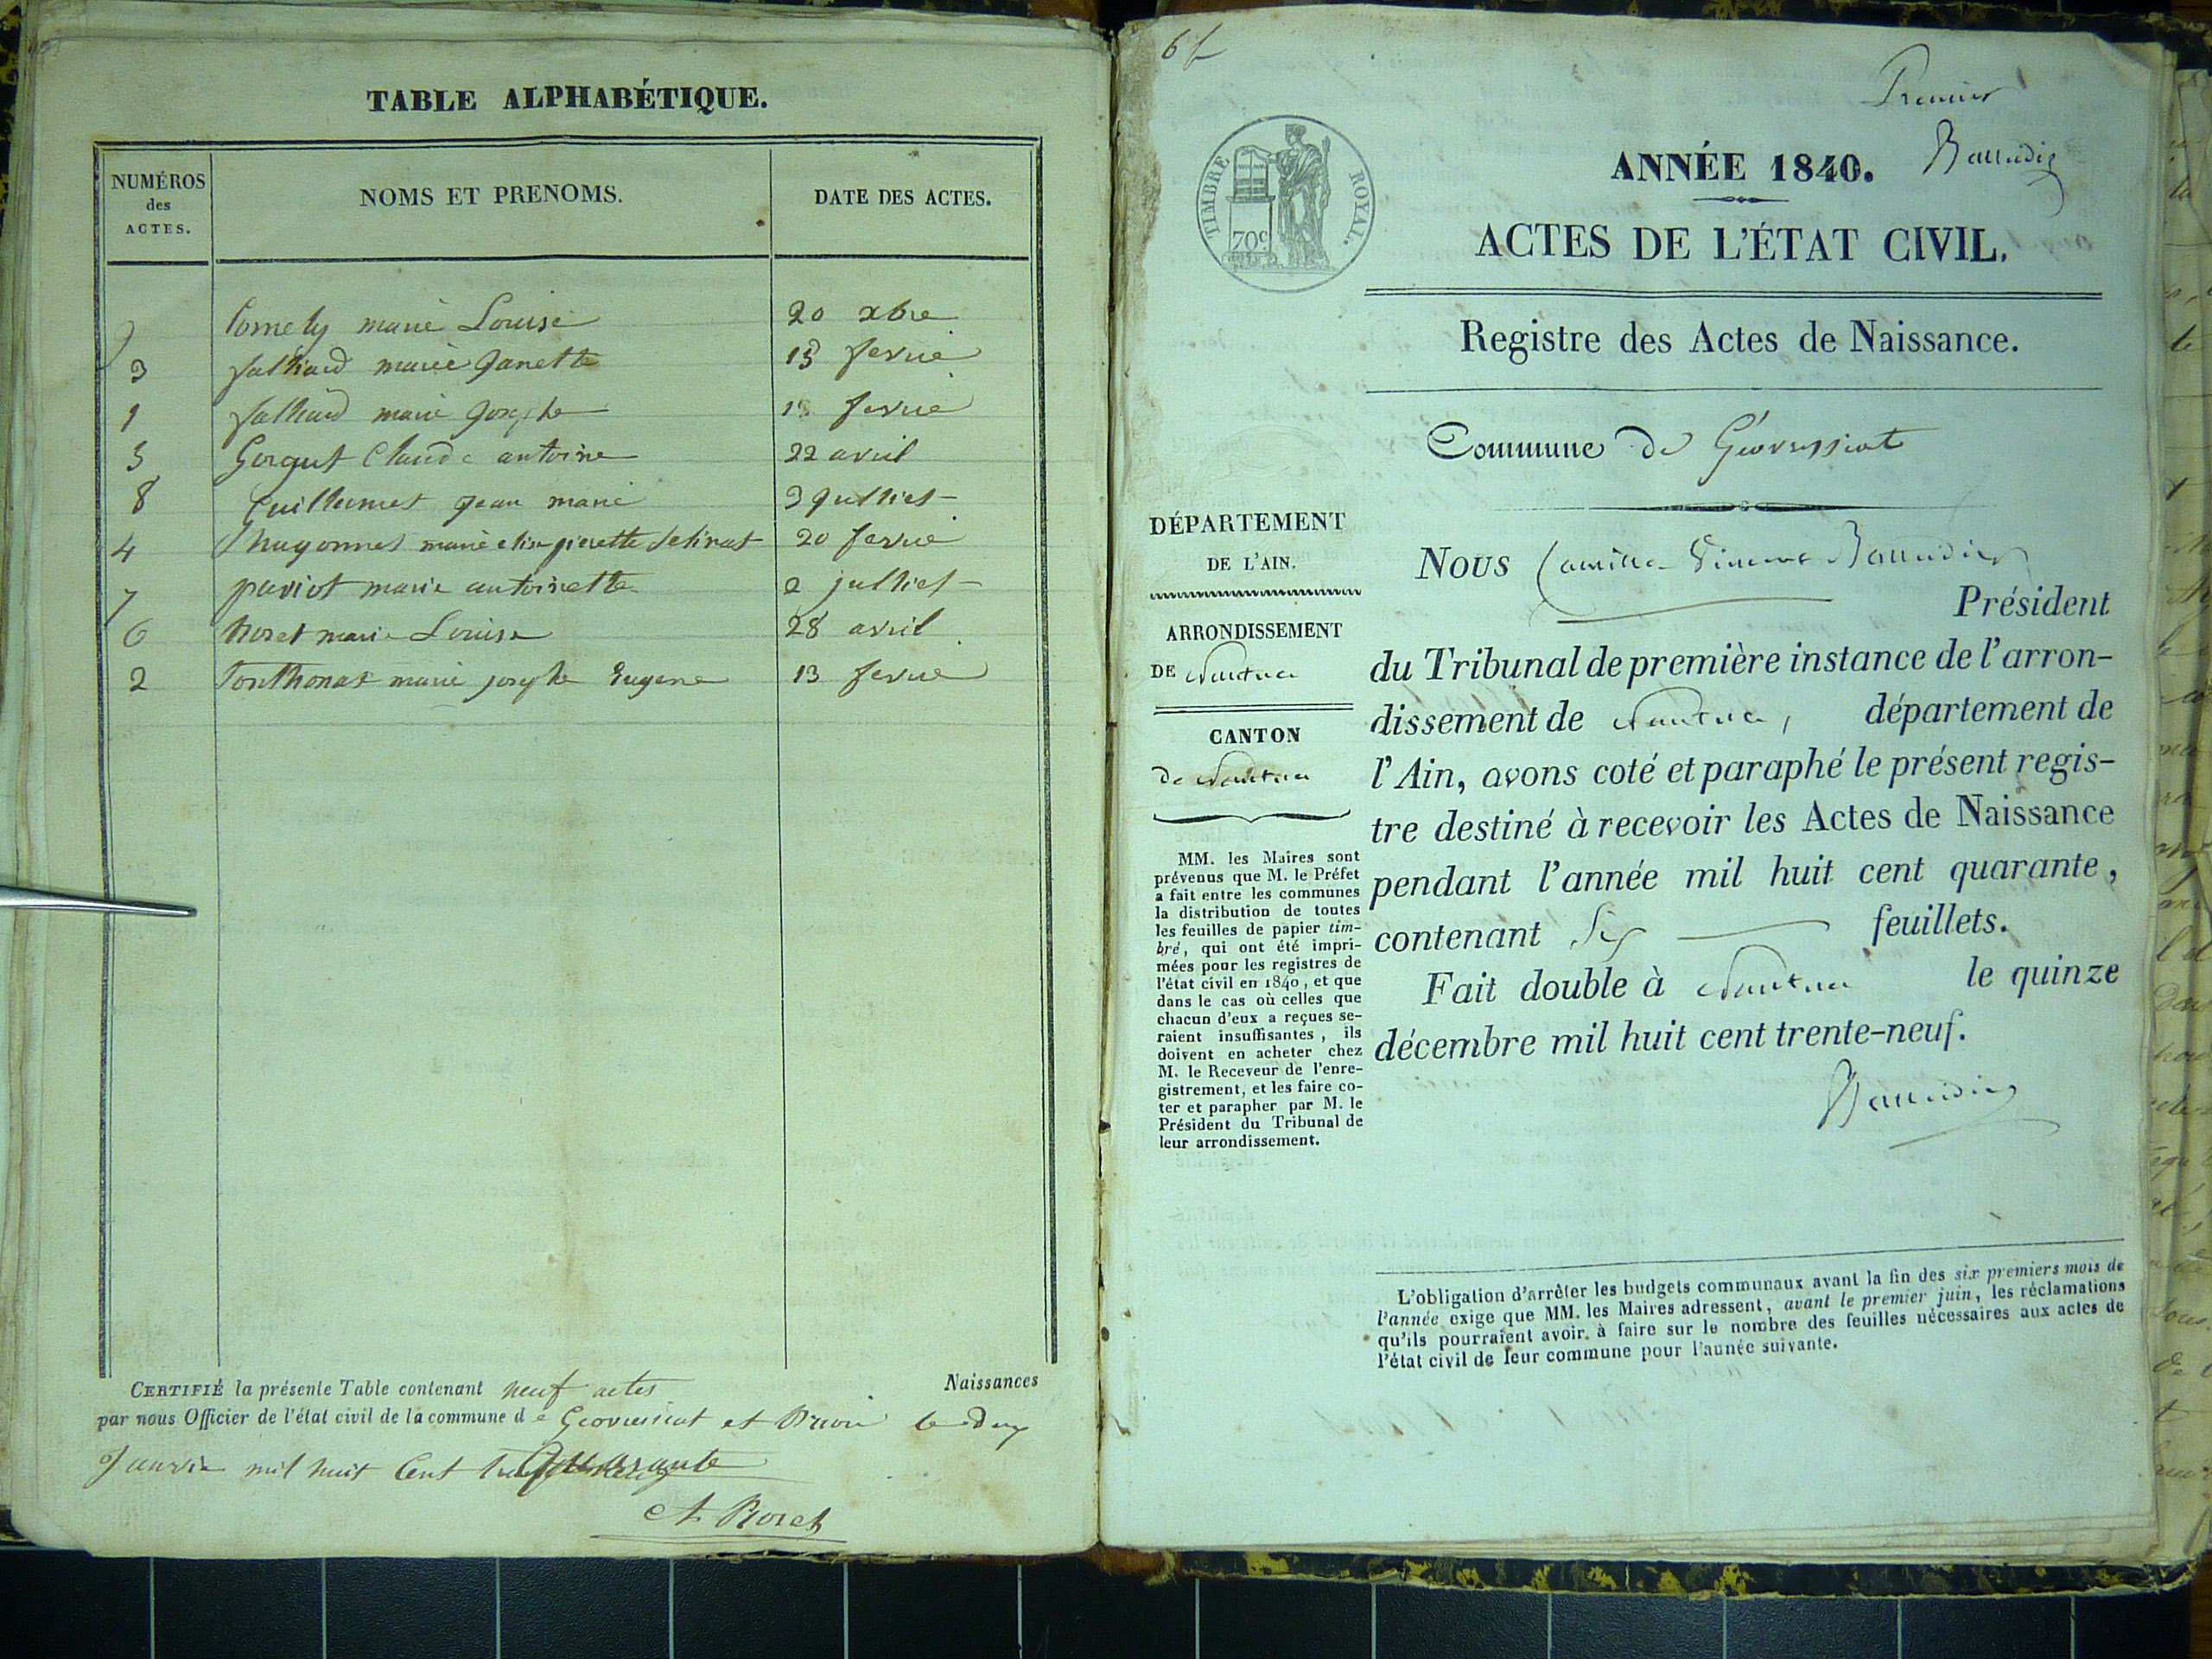 TABLE ALPHABÉTIQUE.
NUMÉROS des ACTES.
NOMS ET PRENOMS.
DATE DES ACTES.
9 Cornely marie Louise 20 xbre
3 Julliard marie Janette 13 fevrié
1 Julliard marie Josephe fevrié
5 Gorgut Claude antoine 22 avril
8 Guillermet Jean marie 3 Julliet
4 marie pierette 20 fevrié
7 paviot marie antoinette 2 julliet
6 Roret marie Louise 28 avril
2 Tonthonas marie josephe Eugene 13 fevrié
CERTIFIÉ la présente Table contenant neuf actes Naissances
par nous Officier de l'état civil de la commune de Geovressiat et le dix
Janvier mil huit Cent Quarante
A Roret
6 f
Premier
Baudier
TIMBRE ROYAL.
70c
ANNÉE 1840.
ACTES DE L'ÉTAT CIVIL.
Registre des Actes de Naissance.
Commune de Géovressiat
DÉPARTEMENT
DE L'AIN.
ARRONDISSEMENT
DE Nantua
CANTON
de Nantua
MM. les Maires sont
prévenus que M. le Préfet
a fait entre les communes
la distribution de toutes
les feuilles de papier tim-
bré, qui ont été impri-
mées pour les registres de
l'état civil en 1840, et que
dans le cas où celles que
chacun d'eux a reçues se-
raient insuffisantes, ils
doivent en acheter chez
M. le Receveur de l'enre-
gistrement, et les faire co-
ter et parapher par M. le
Président du Tribunal de
leur arrondissement.
Nous Camille Vincent
Président
du Tribunal de première instance de l'arron-
dissement de Nantua, département de
l'Ain, avons coté et paraphé le présent regis-
tre destiné à recevoir les Actes de Naissance
pendant l'année mil huit cent quarante,
contenant Six feuillets.
Fait double à Nantua le quinze
décembre mil huit cent trente-neuf.
L'obligation d'arrêter les budgets communaux avant la fin des six premiers mois de
l'année exige que MM. les Maires adressent, avant le premier juin, les réclamations
qu'ils pourraient avoir à faire sur le nombre des feuilles nécessaires aux actes de
l'état civil de leur commune pour l'année suivante.